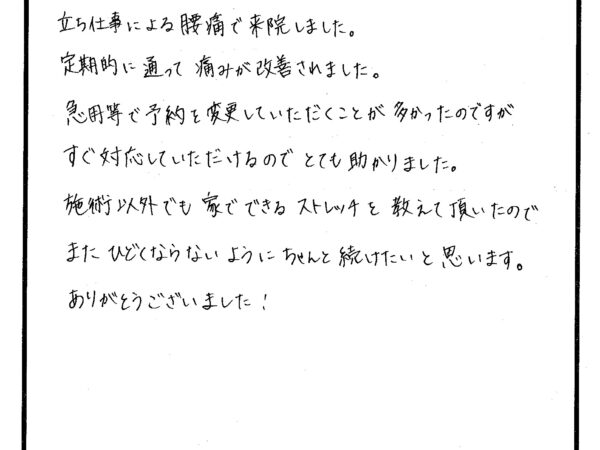 立ち仕事による腰痛で来院しました。
定期的に通って痛みが改善されました。
急用等で予約を変更していただくことが多かったのですが
すぐ対応していただけるのでとても助かりました。
施術以外でも家でできるストレッチを教えて頂いたので
またひどくならないようにちゃんと続けたいと思います。
ありがとうございました!